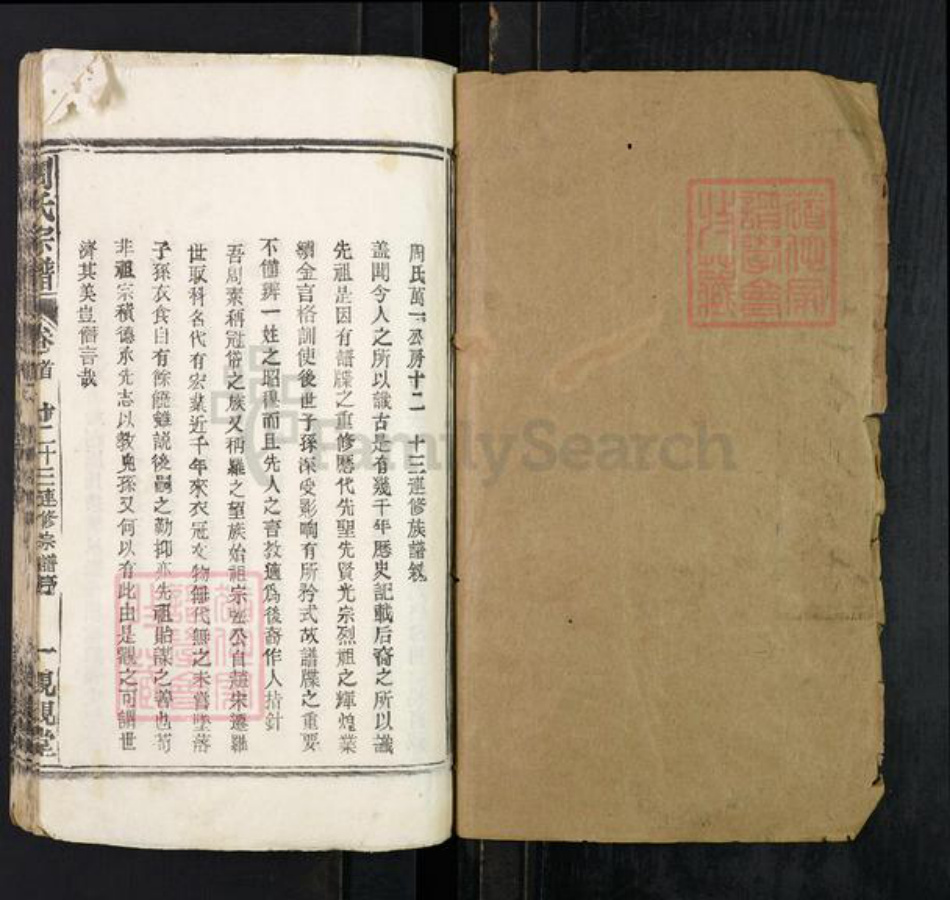 周氏萬一公房十二 十三連修族譜叙
盖聞今人之所以識古是有幾千年歷史記載后裔之所以識
先祖是因有譜牒之重修歷代先聖先賢光宗烈祖之輝煌業
績金言格訓使後世子孫深受影响有所矜式故譜牒之重要
不僅辨一姓之昭穆而且先人之言教適爲後裔作人指針
吾周素稱冠俗之族又称羅之望族始祖宗 公自趙宋遷羅
世取科名代有宏業近千年來衣冠文物每代無之未嘗墜落
子孫衣食自有餘饒雖説後嗣之勤抑亦先祖貽謀之善也苟
非祖宗積德承先志以敎兒孫又何以有此由是觀之可謂世
濟其美豈僭言哉
周氏宗譜
卷首 十二十三連修宗譜序 一
FamilySearch